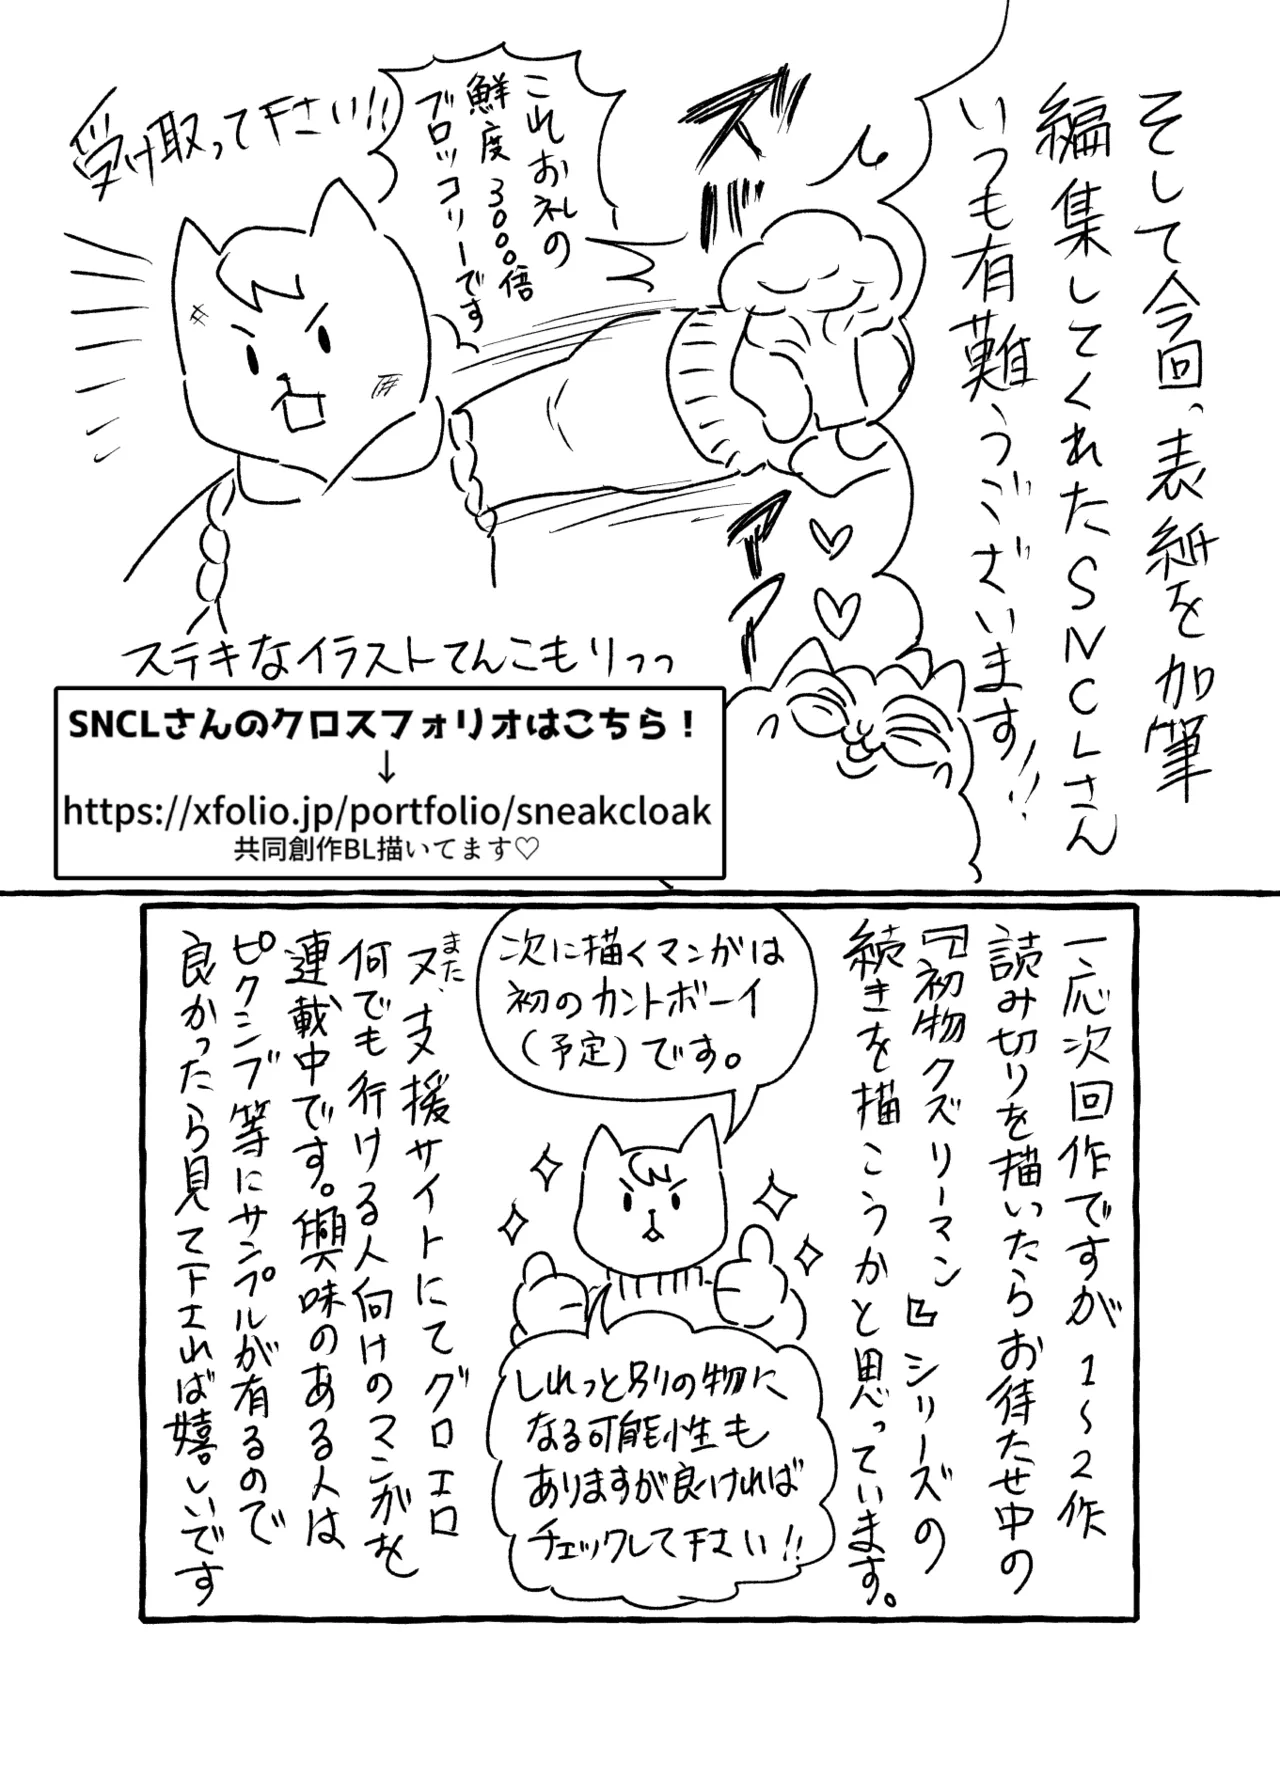 そして今回、表紙を加筆
編集してくれたSNCLさん
いつも有難うございます!!
ズバ
アア
これお礼の
鮮度3000倍
ブロッコリーです
受け取って下さい!!
ステキなイラストてんこもりっっ
SNCLさんのクロスフォリオはこちら！
↓
https://xfolio.jp/portfolio/sneakcloak
共同創作BL描いてます♡
一応次回作ですが1〜2作
読み切りを描いたらお待たせ中の
『初物クズリーマン』シリーズの
続きを描こうかと思っています。
次に描くマンガは
初のカントボーイ
(予定)です。
しれっと別の物に
なる可能性も
ありますが良ければ
チェックして下さい!!
また
又、支援サイトにてグロエロ
何でも行ける人向けのマンガを
連載中です。興味のある人は
ピクシブ等にサンプルが有るので
良かったら見て下されば嬉しいです